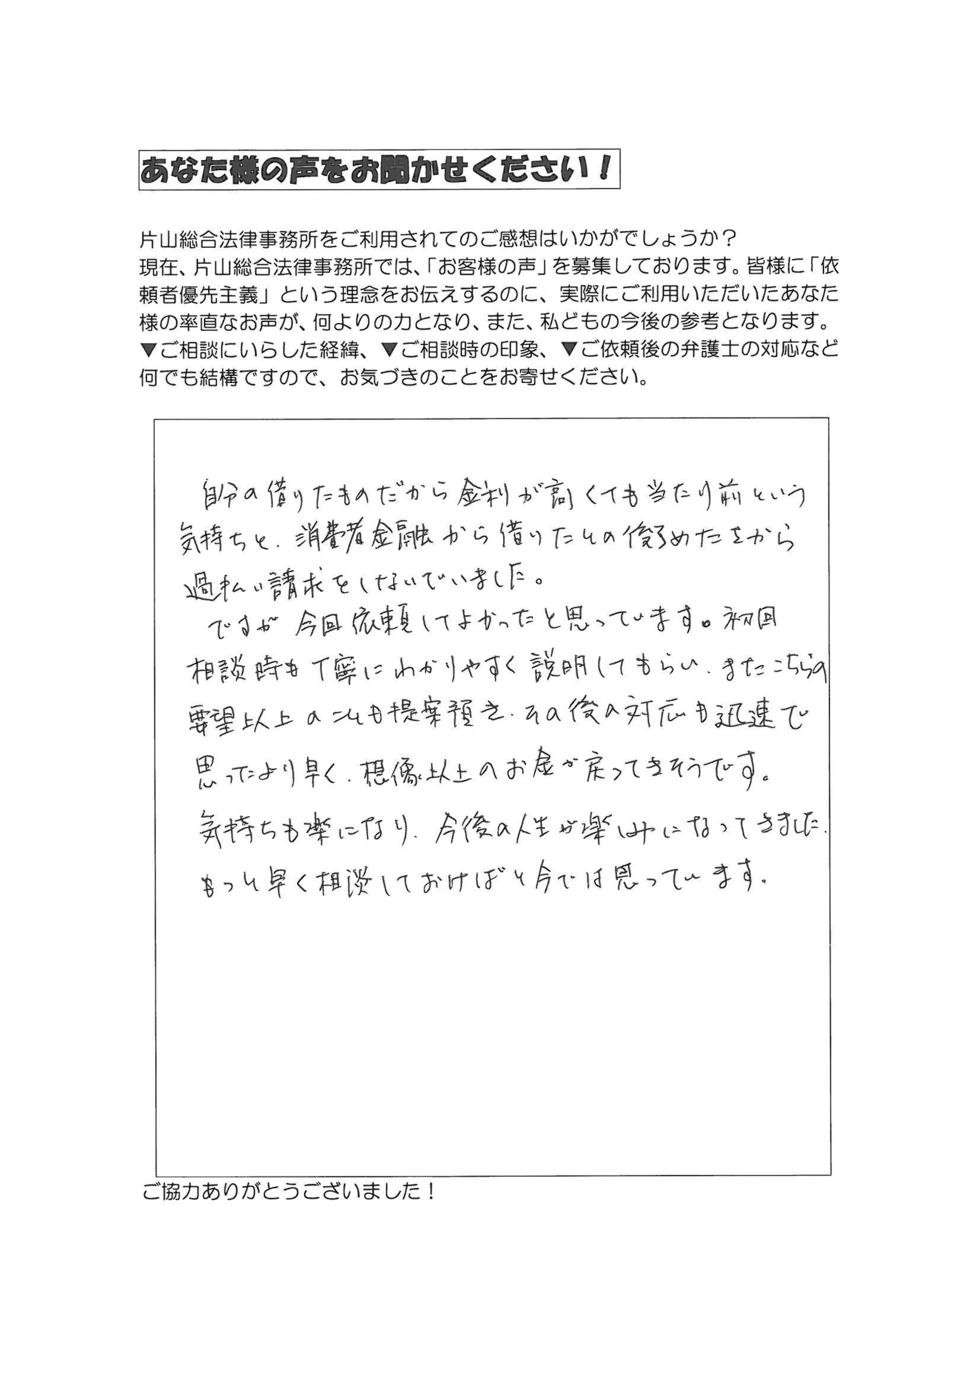 あなた様の声をお聞かせください！
片山総合法律事務所をご利用されてのご感想はいかがでしょうか？
現在、片山総合法律事務所では、「お客様の声」を募集しております。皆様に「依
頼者優先主義」という理念をお伝えするのに、実際にご利用いただいたあなた
様の率直なお声が、何よりの力となり、また、私どもの今後の参考となります。
▼ご相談にいらした経緯、▼ご相談時の印象、▼ご依頼後の弁護士の対応など
何でも結構ですので、お気づきのことをお寄せください。
自分の借りたものだから金利が高くても当たり前という
気持ちと、消費者金融から借りたとの後ろめたさから
過払い請求をしないでいました。
ですが今回依頼してよかったと思っています。初回
相談時も丁寧にわかりやすく説明してもらい、またこちらの
要望以上のことも提案頂き、その後の対応も迅速で
思ったより早く、想像以上のお金が戻ってきそうです。
気持ちも楽になり、今後の人生が楽しみになってきました。
もっと早く相談しておけばと今では思っています。
ご協力ありがとうございました！